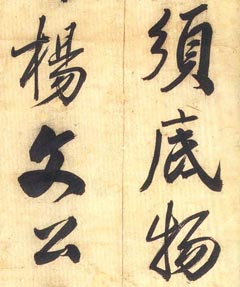 須底物
楊文公